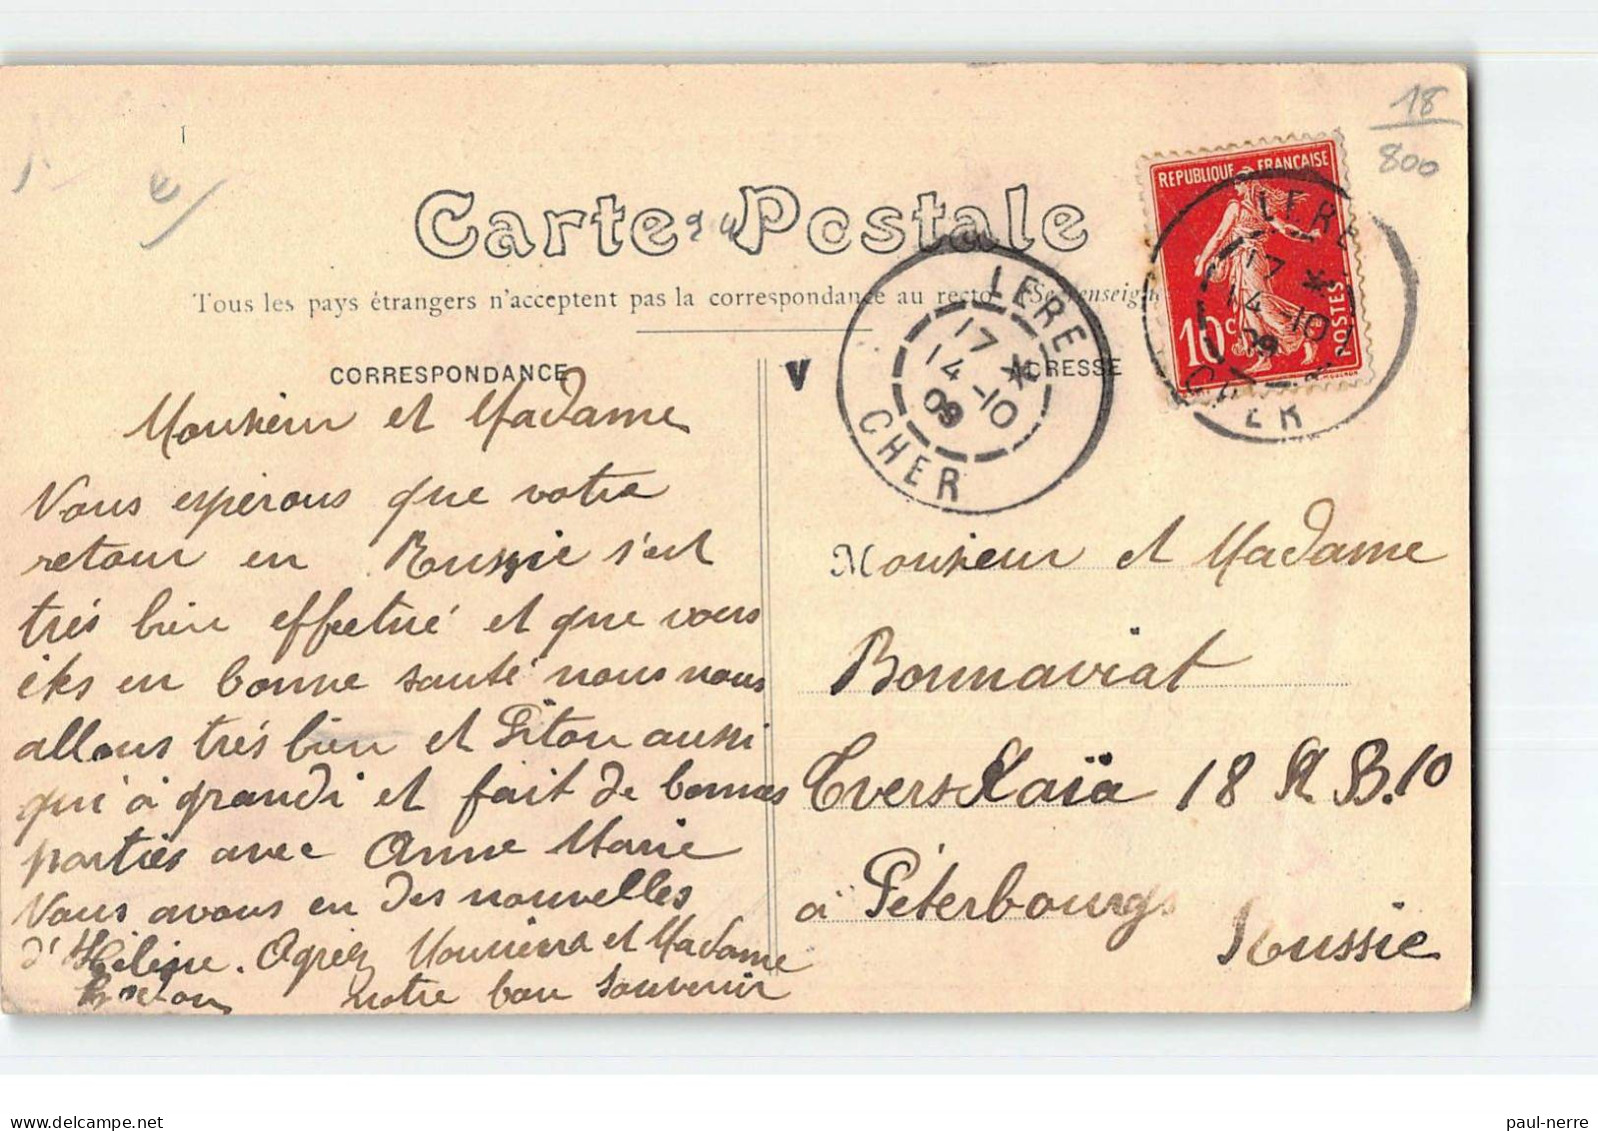 18
800
RÉPUBLIQUE FRANÇAISE
10c
POSTES
LERE
17 *
14 -10
09
CHER
Carte Postale
Tous les pays étrangers n'acceptent pas la correspondance au recto (Se renseign
LERE
17 *
14 -10
09
CHER
CORRESPONDANCE
ADRESSE
Monsieur et Madame
Nous espérons que votre
retour en Russie s'est
très bien effectué et que vous
êtes en bonne santé nous nous
allons très bien et Piton aussi
qui à grandi et fait de bonnes
parties avec Anne Marie
Nous avons eu des nouvelles
d'Hélène. Agréez Monsieur et Madame
notre bon souvenir
Monsieur et Madame
Bonnaviat
Tverskaïa 18 K B.10
à Péterbourgs
Russie
paul-nerre